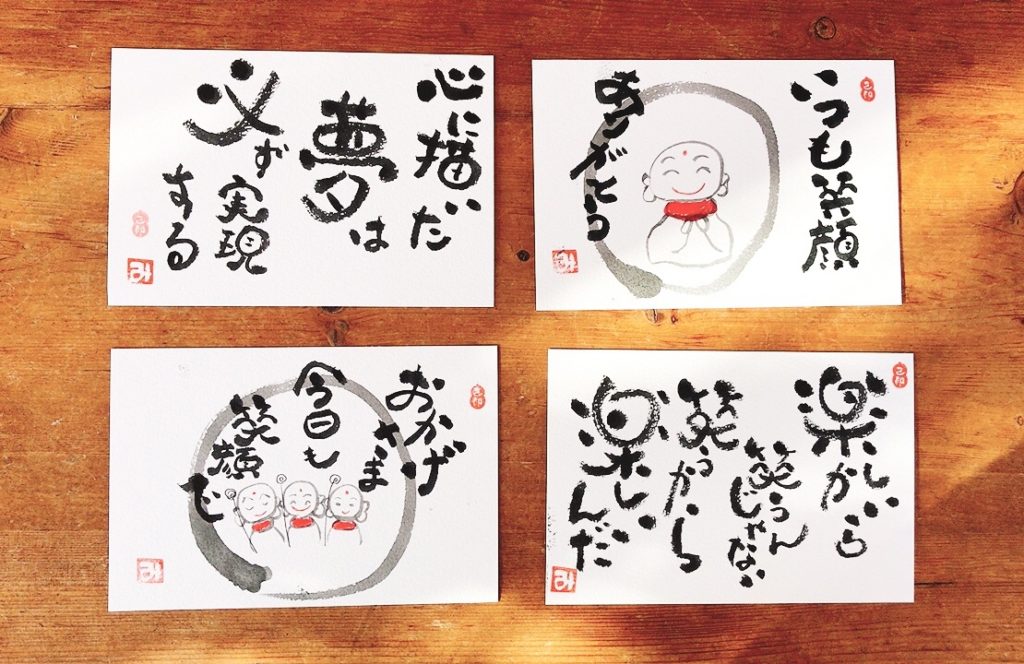 心に描いた
夢は
必ず
実現
する
いつも笑顔
ありがとう
おかげ
さま
今日も
笑顔
で
楽しいから
笑うん
じゃない
笑うから
楽しいんだ
み
み
み
み